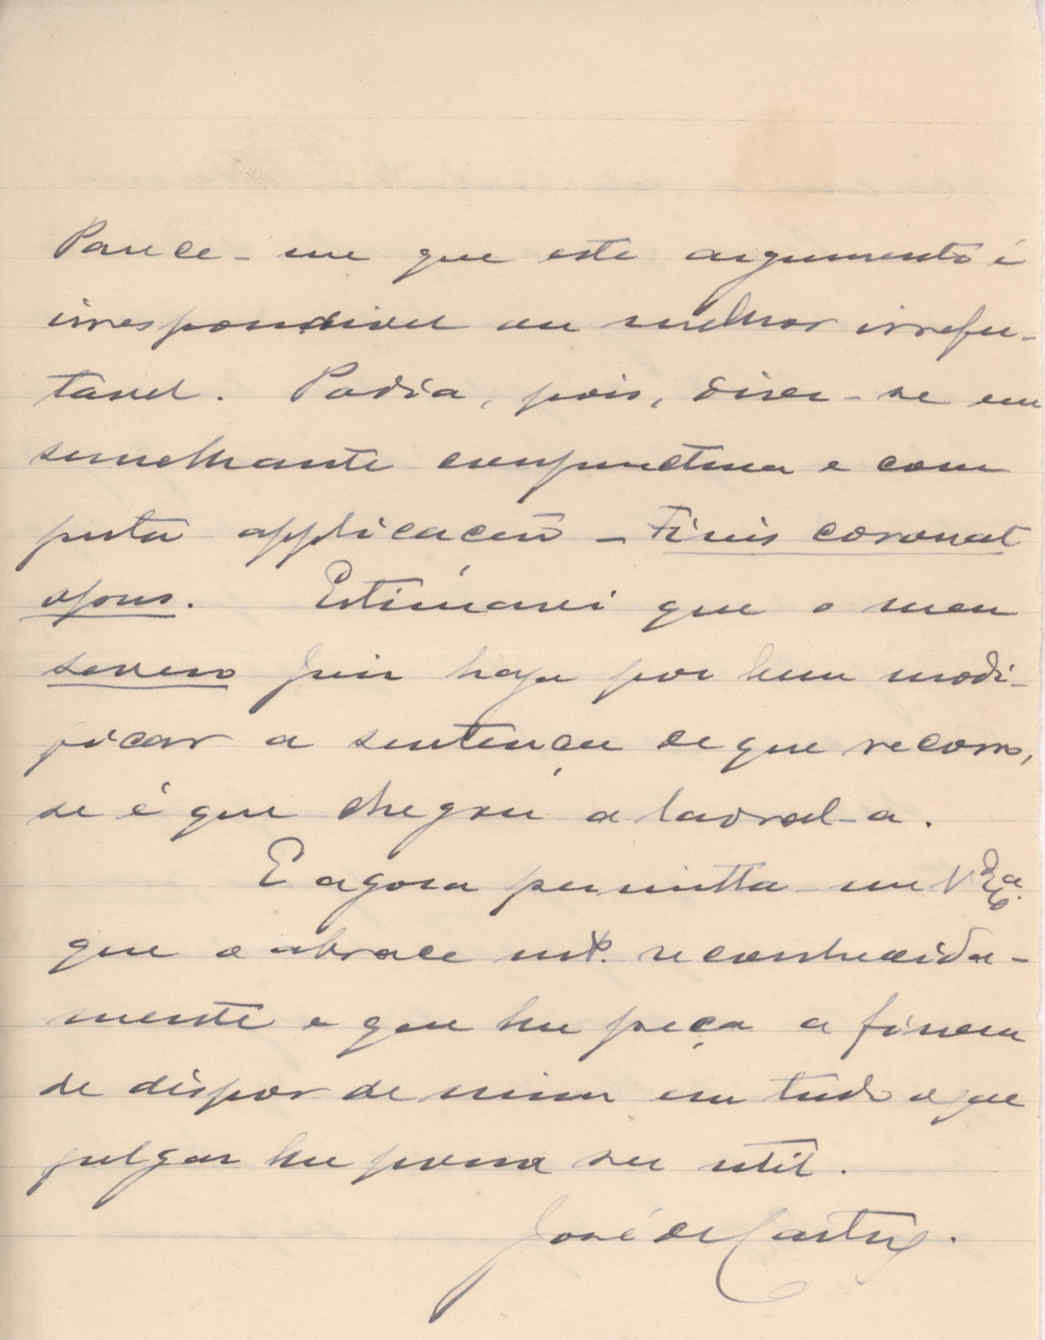 Parece-me que este argumento é
irrespondivel ou melhor irrefu-
tavel. Podia, pois, diser-se em
semelhante conjunctura e com
justa applicacão - Finis coronat
opus. Estimarei que o meu
severo juiz haja por bem modi-
ficar a sentença de que recorro,
se é que chegou a lavral-a.
E agora permitta-me V. Exa.
que o abrace mto. reconhecida-
mente e que lhe peça a finesa
de dispor de mim em tudo o que
julgar lhe possa ser util.
José de Castro.